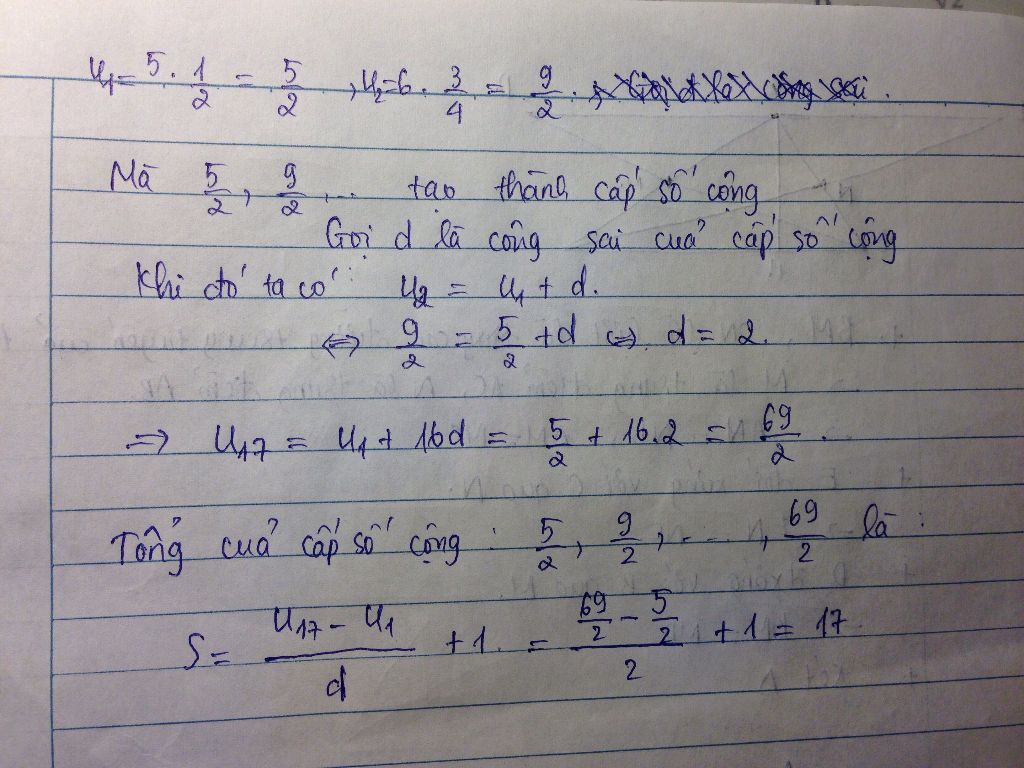 u₁ = 5 . 1/2 = 5/2 , u₂ = 6 . 3/4 = 9/2 . , Gọi d là công sai .
Mà 5/2 , 9/2 , ... tạo thành cấp số cộng
Gọi d là công sai của cấp số cộng
Khi đó ta có : u₂ = u₁ + d .
⇔ 9/2 = 5/2 + d ⇔ d = 2 .
⇒ u₁₇ = u₁ + 16d = 5/2 + 16.2 = 69/2 .
Tổng của cấp số cộng : 5/2 , 9/2 , ... , 69/2 là :
S = (u₁₇ - u₁)/d + 1 = (69/2 - 5/2)/2 + 1 = 17